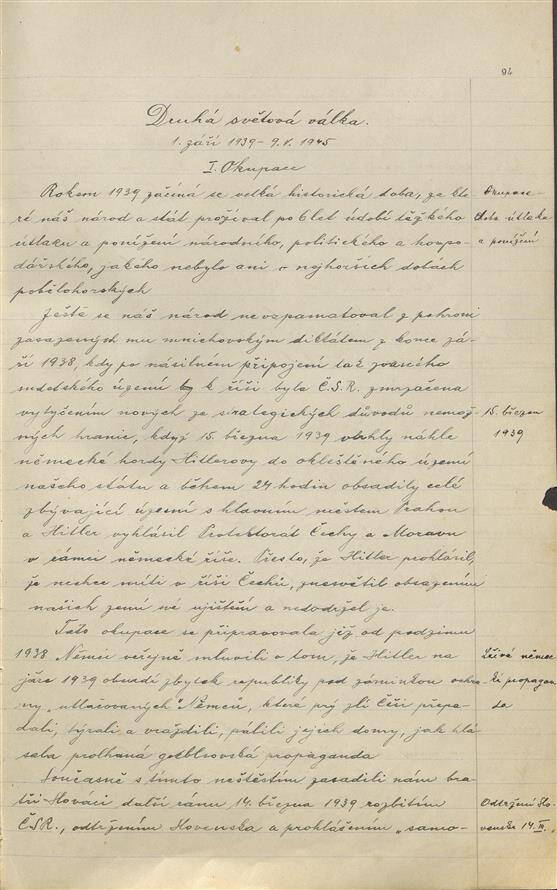 94
Druhá světová válka.
1. září 1939 - 9.V. 1945
I. Okupace
Rokem 1939 začíná se velká historická doba, ve kte-
ré náš národ a stát prožíval po 6 let údobí těžkého
útlaku a ponížení národního, politického a hospo-
dářského, jakého nebylo ani v nejhorších dobách
pobělohorských
Okupace -
doba útlaku
a ponížení
Ještě se náš národ nevzpamatoval z pohrom
zasazených mu mnichovským diktátem z konce zá-
ří 1938, kdy po násilném připojení tak zvaného
sudetského území k říši byla Č.S.R. zmrzačena
vytyčením nových ze strategických důvodů nemož-
ných hranic, když 15. března 1939 vtrhly náhle
německé hordy Hitlerovy do okleštěného území
našeho státu a během 24 hodin obsadily celé
zbývající území s hlavním městem Prahou
a Hitler vyhlásil Protektorát Čechy a Morava
v rámci německé říše. Přesto, že Hitler prohlásil,
že nechce míti v říši Čechů, znesvětil obsazením
našich zemí své ujištění a nedodržel je.
15. březen
1939
Tato okupace se připravovala již od podzimu
1938. Němci veřejně mluvili o tom, že Hitler na
jaře 1939 obsadí zbytek republiky pod záminkou ochra-
ny „utlačovaných" Němců, které prý zlí Češi přepa-
dali, týrali a vraždili, pálili jejich domy, jak hlá-
sala prolhaná goebblsovská propaganda
Lživá němec-
ká propagan-
da
Současně s tímto neštěstím zasadili nám bra-
tři Slováci další ránu 14. března 1939 rozbitím
Č.S.R., odtržením Slovenska a prohlášením „samo-
Odtržení Slo-
venska 14.III.